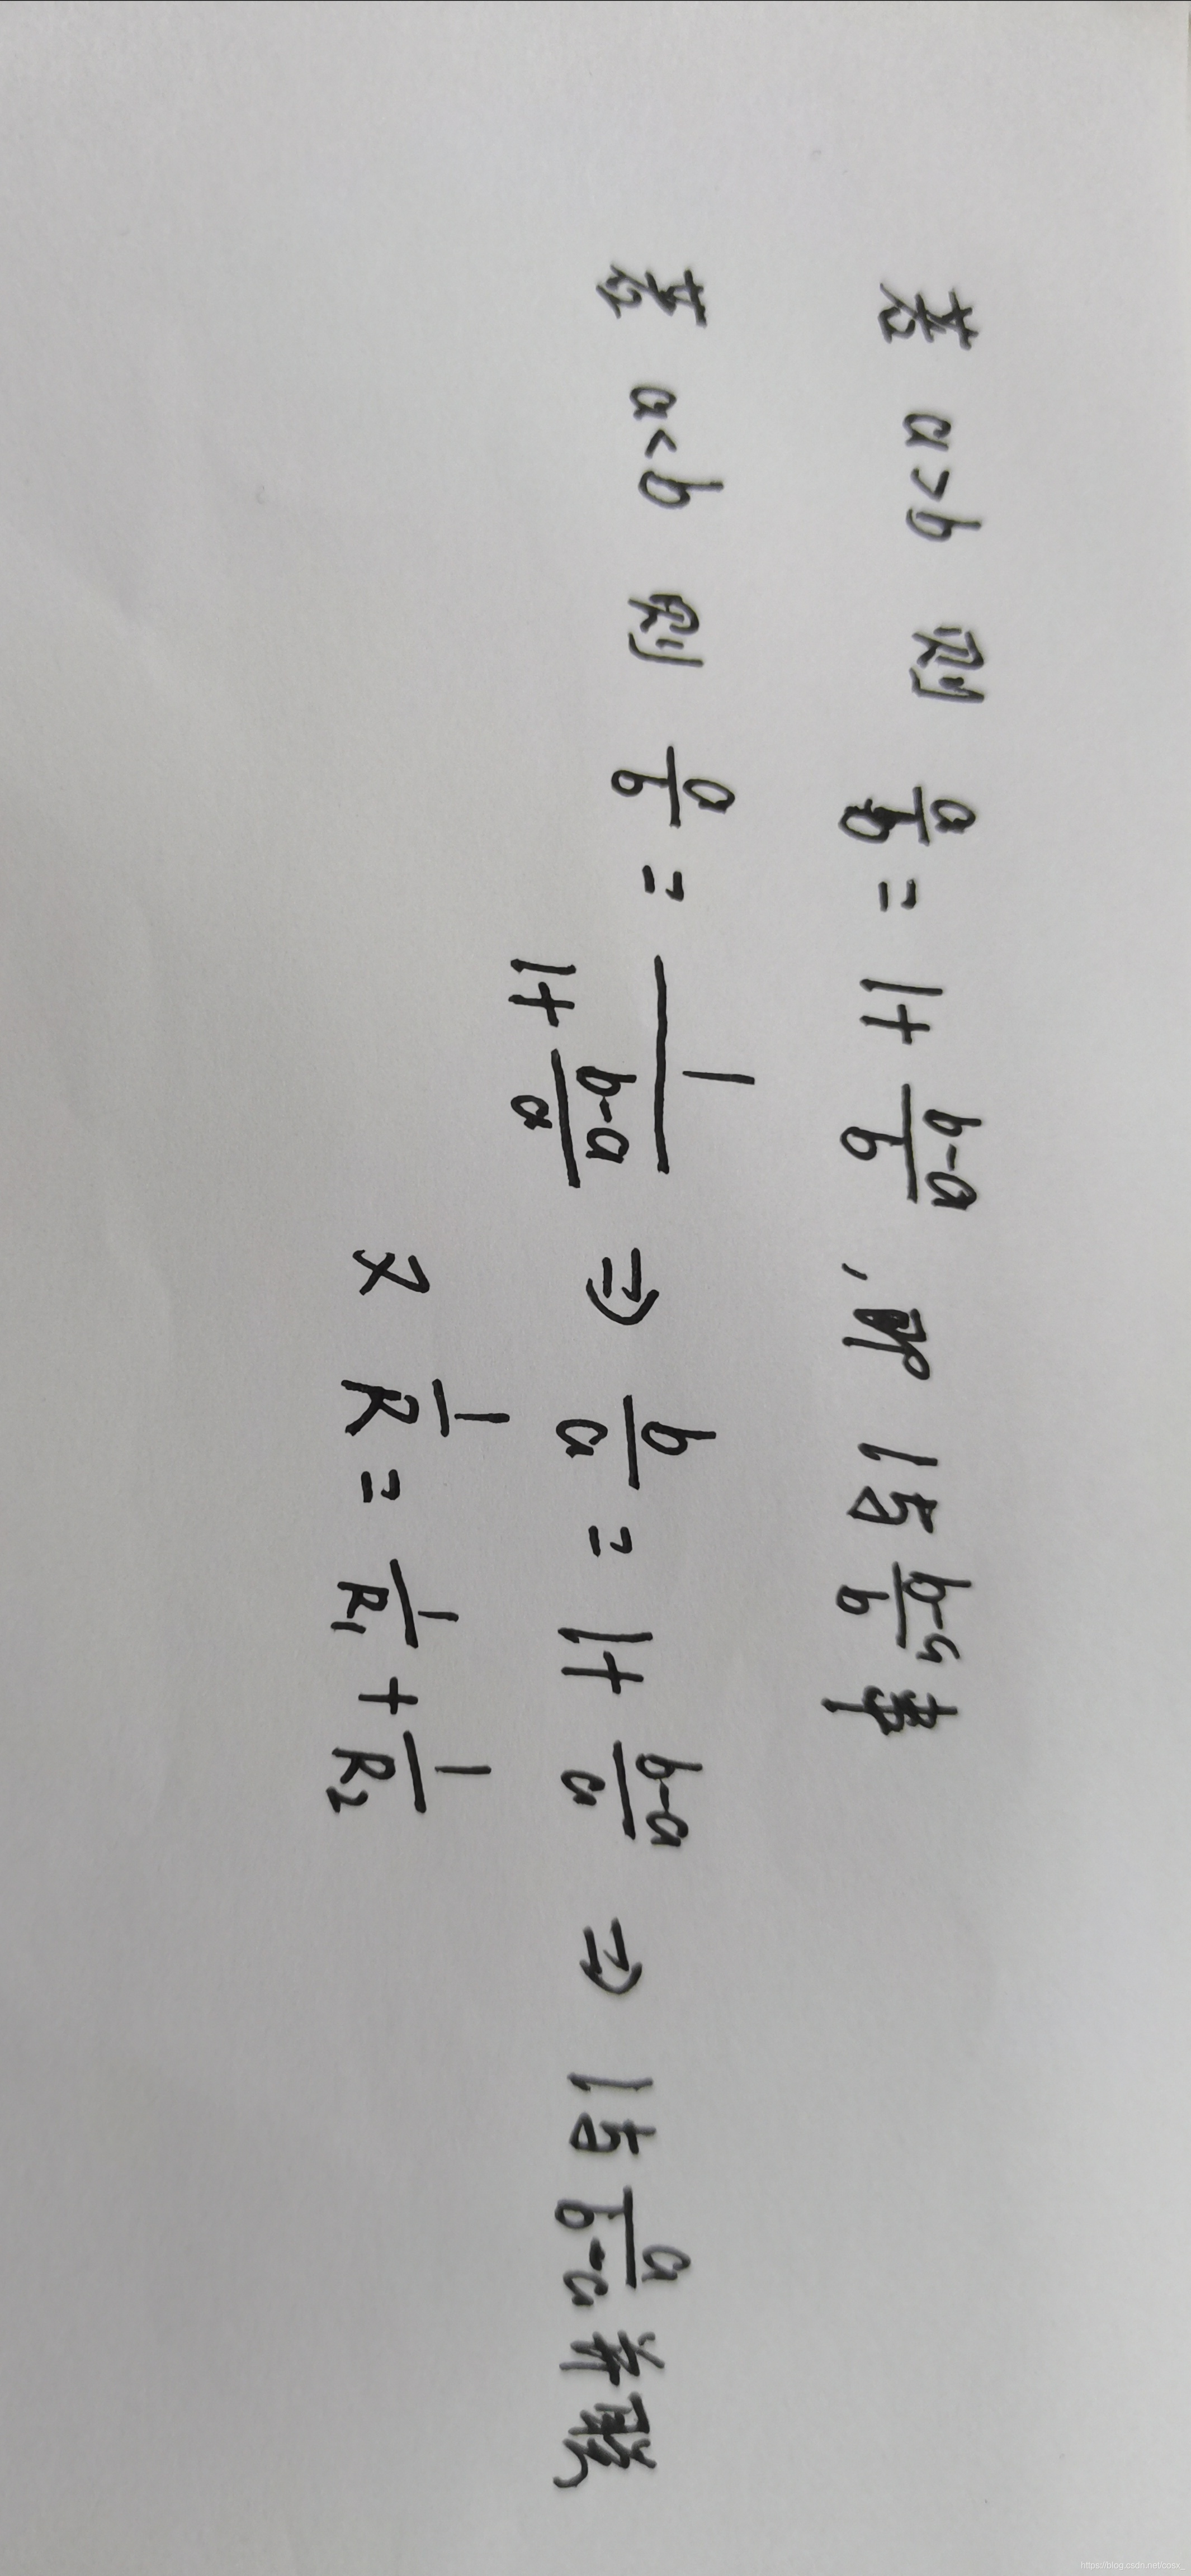 若 a>b 则 a/b = 1+ (b-a)/b ,即 1与 (b-a)/b 串
若 a<b 则 a/b = 1/(1+ (b-a)/a) ⇒ b/a = 1+ (b-a)/a ⇒ 1与 a/(b-a) 并联
又 1/R = 1/R1 + 1/R2
https://blog.csdn.net/cosx_